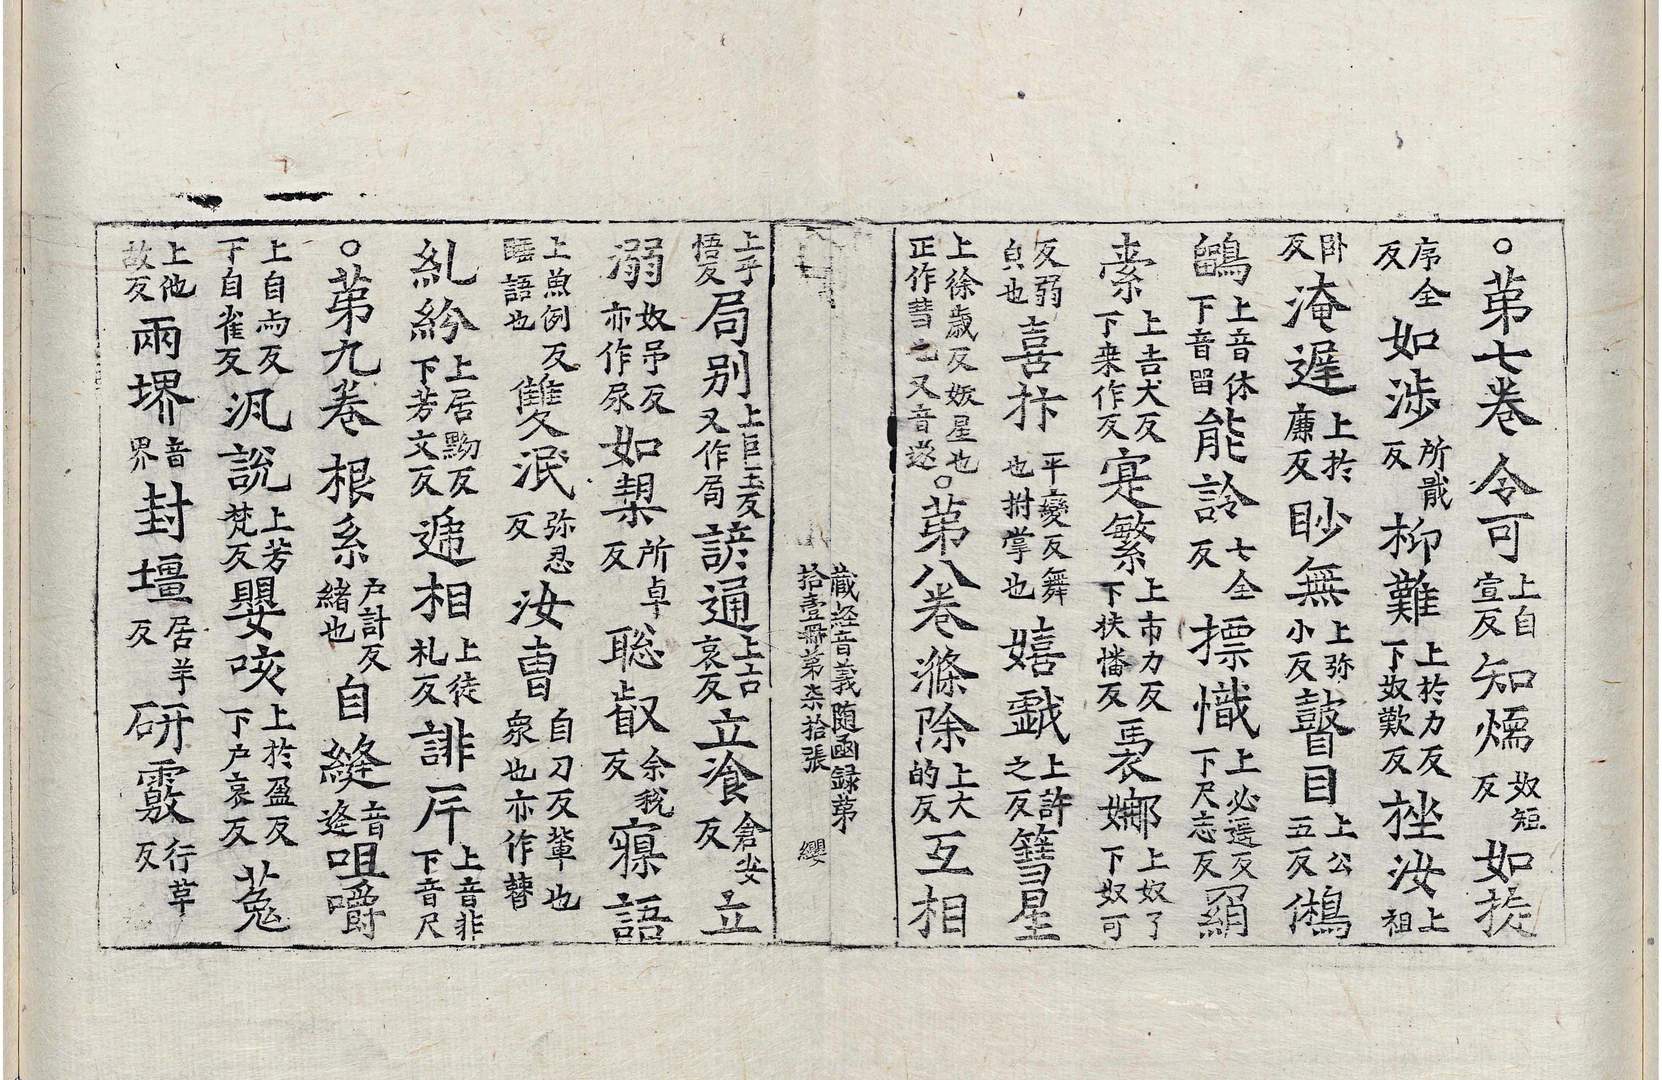 ○第七卷 令可 上自宣反 知煗 奴短反 如㨗
序全反 如涉 所戢反 柳難 上於力反下奴歎反 挫汝 上祖
卧反 淹遲 上於廉反 眇無 上弥小反 瞽目 上公五反 鵂
鶹 上音休下音留 能詅 七全反 摽幟 上必遥反下尺志反 羂
索 上吉犬反下来作反 寔繁 上市力反下扶憣反 䮍 上奴了下奴可
反弱皃也 喜抃 平變反舞也拊掌也 嬉戱 上許之反 篲星
上徐歲反妭星也正作彗也又音遂 ○第八卷 滌除 上大的反 互相
藏經音義随函録第
拾壹冊第柒拾張 纓
上乎悟反 局别 上巨玉反又作局 諺通 上吉哀反 立飡 倉安反 立
溺 奴吊反亦作尿 如槊 所卓反 聡叡 余稅反 寱語
上魚例反睡語也 雙泯 弥忍反 汝曺 自刀反軰也衆也亦作𣍘
糺紛 上居黝反下芳文反 遞相 上徒札反 誹斥 上音非下音尺
○第九卷 根系 户計反緒也 自縫 音逄 咀嚼
上自与反下自雀反 汎說 上芳梵反 嬰咳 上於盈反下户哀反 蒬
上他故反 兩堺 音界 封壃 居羊反 研覈 行革反